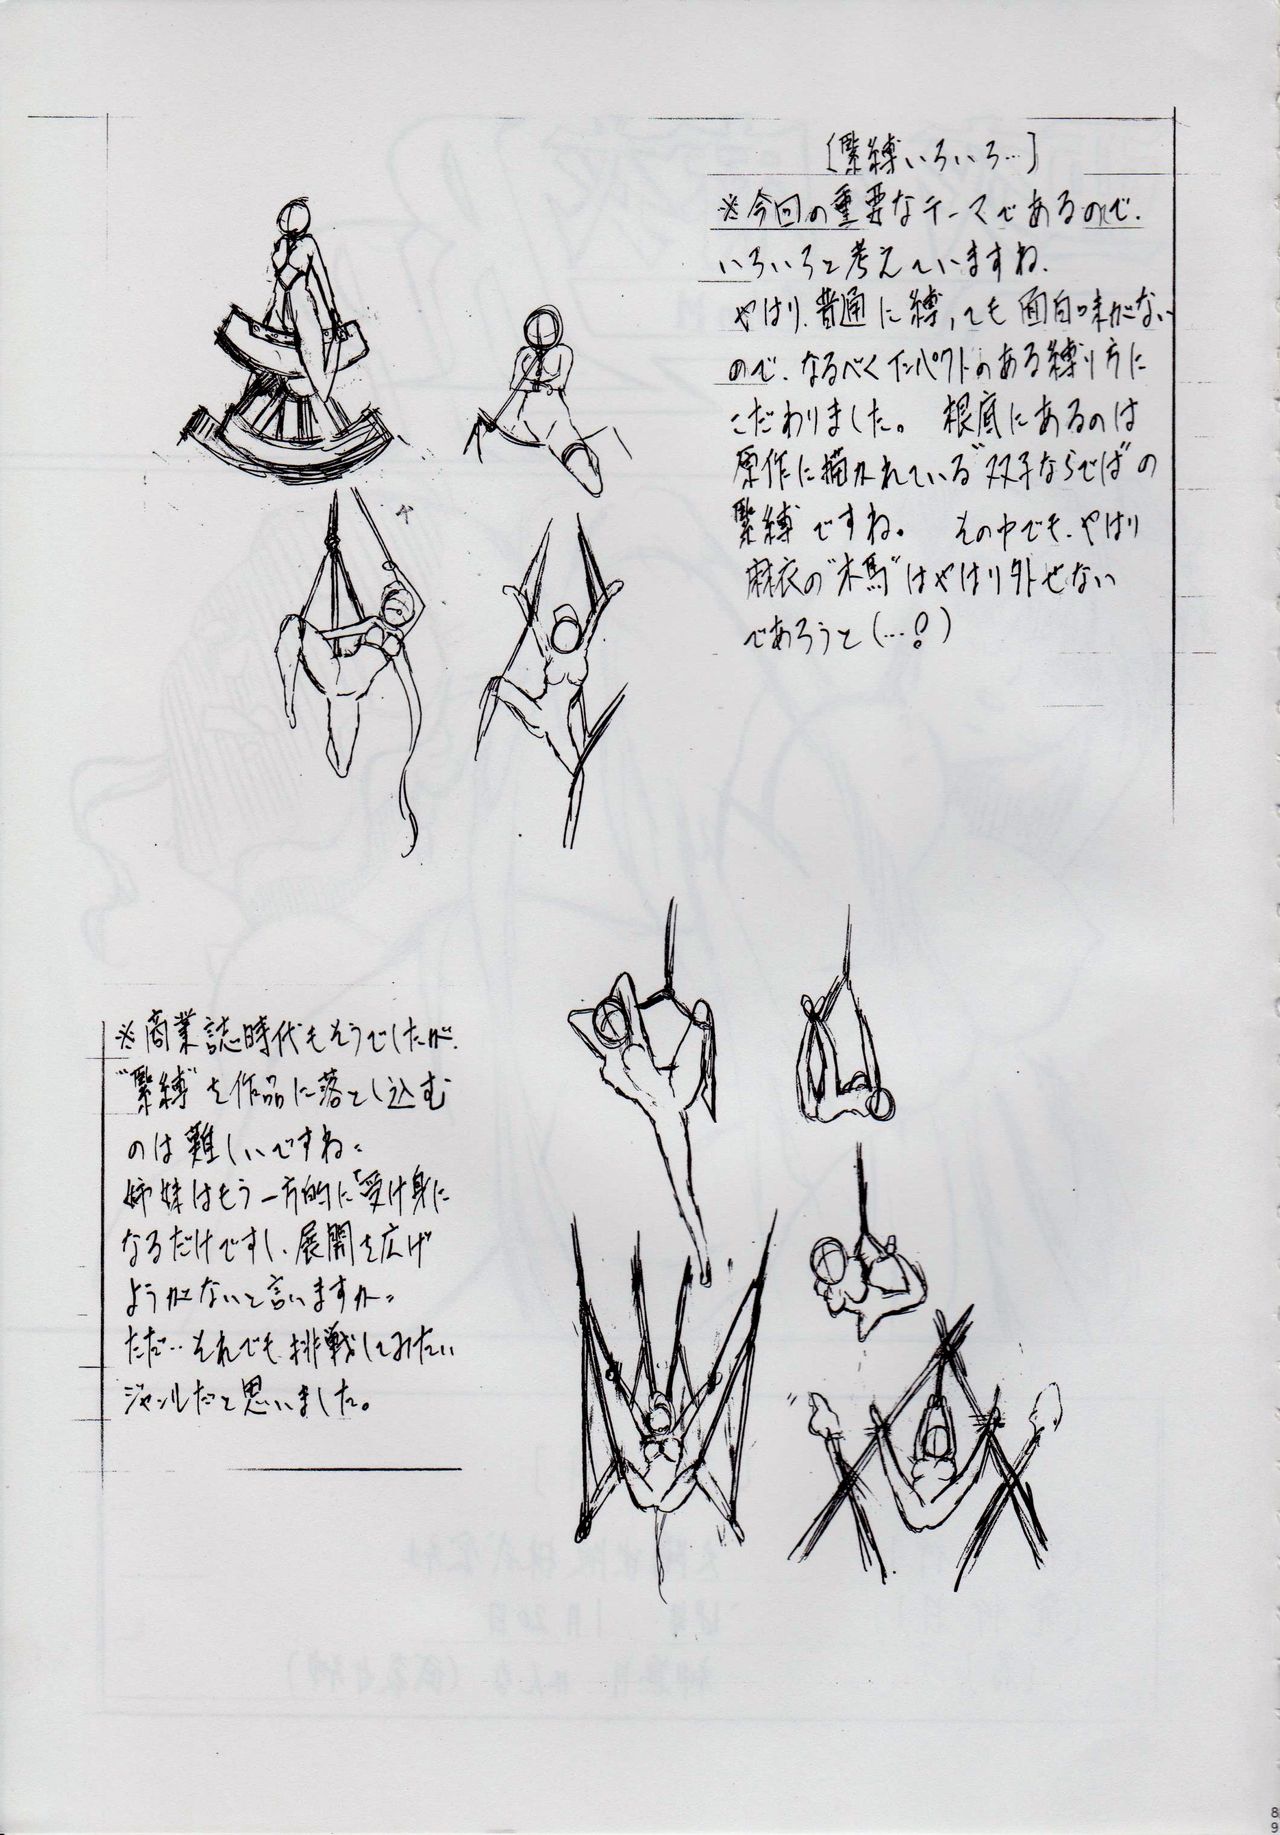 〔緊縛いろいろ…〕
※今回の重要なテーマであるので、
いろいろと考えていますね、
やはり、普通に縛っても面白味がない
ので、なるべくインパクトのある縛り方に
こだわりました。 根底にあるのは
原作に描かれている“双子ならでば”の
緊縛ですね。 その中でも、やはり
麻衣の“木馬”はやはり外せない
であろうと(…?)
※商業誌時代もそうでしたが、
“緊縛”を作品に落とし込む
のは難しいですね。
姉妹はもう一方的に「受け身に
なるだけですし、展開を広げ
ようがないと言いますか。
ただ…それでも、挑戦してみたい
ジャンルだと思いました。
89